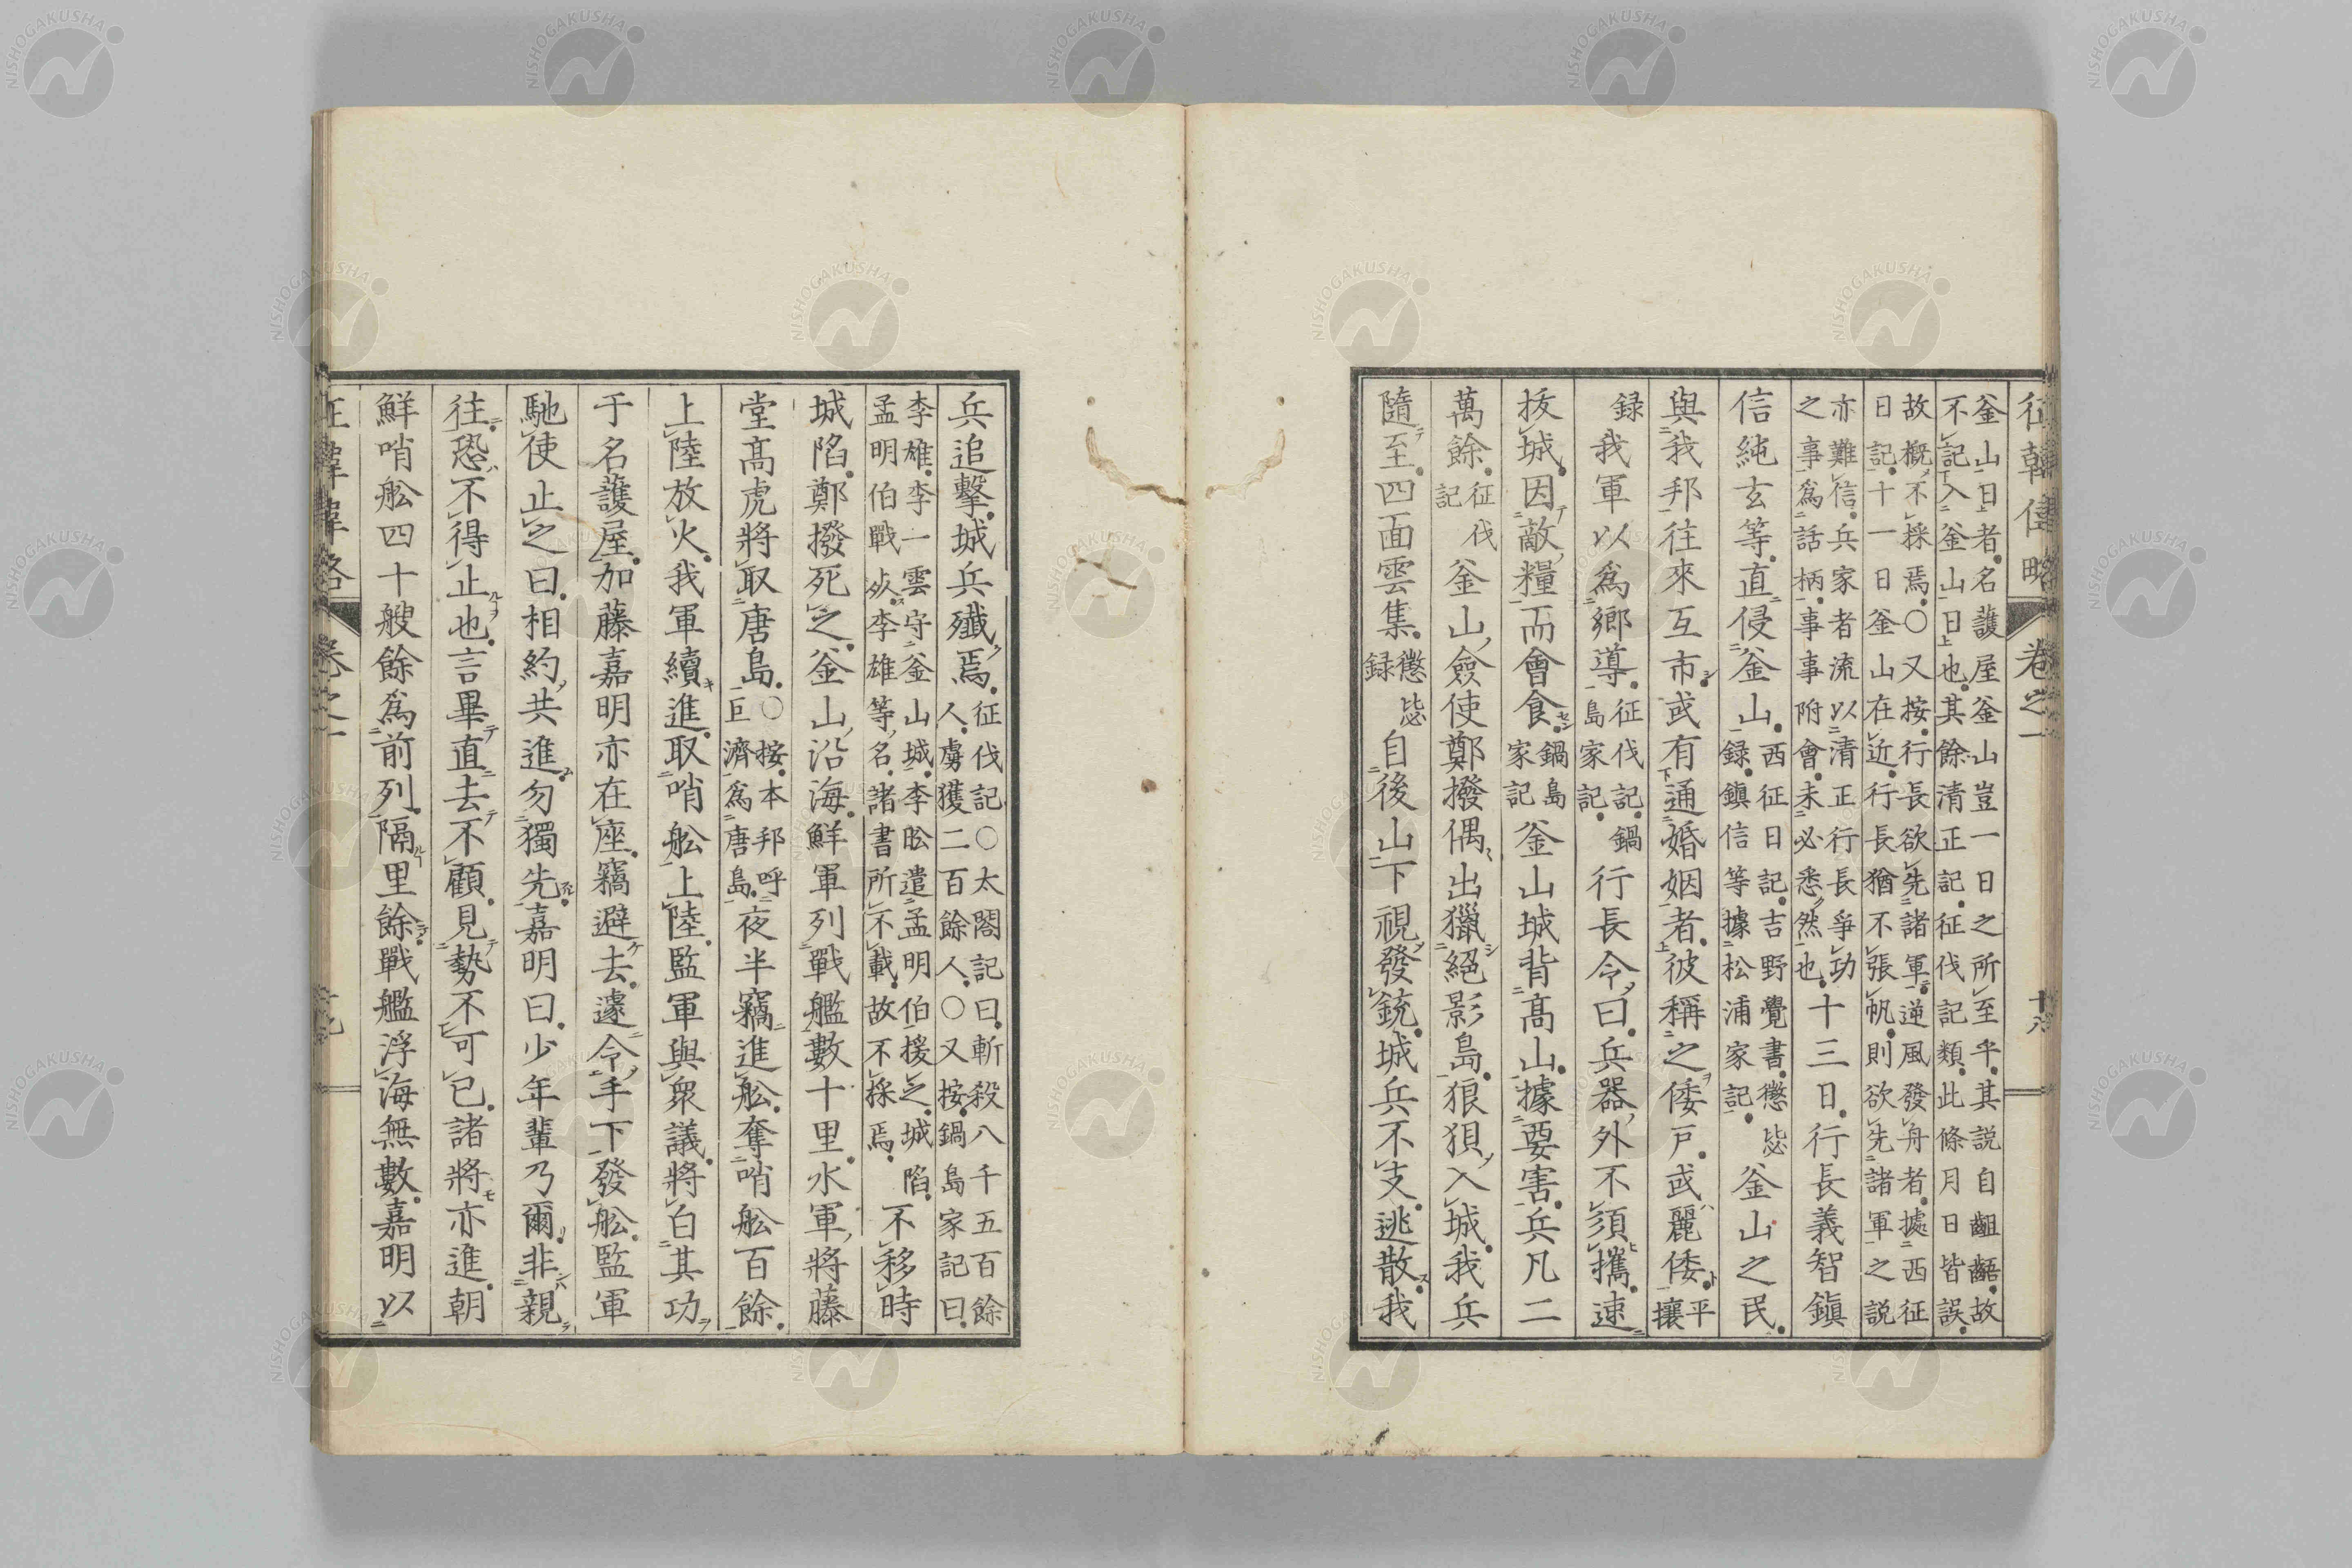 征韓偉略 卷之一 十八
釜山日者名護屋釜山豈一日之所至乎其説自齟齬故
不記入釜山日也其餘清正記征伐記類此條月日皆誤
故概不採焉○又按行長欲先諸軍逆風發舟者據西征
日記十一日釜山在近行長猶不張帆則欲先諸軍之説
亦難信兵家者流以清正行長爭功
之事爲話柄事事附會未必悉然也十三日行長義智鎭
信純玄等直侵釜山西征日記吉野覺書懲毖
録鎭信等據松浦家記釜山之民
與我邦往來互市或有通婚姻者彼稱之倭戸或麗倭平壤
録我軍以爲郷導征伐記鍋
島家記行長令曰兵器外不須攜速
拔城因敵糧而會食鍋島
家記釜山城背高山據要害兵凡二
萬餘征伐
記釜山僉使鄭撥偶出獵絕影島狼狽入城我兵
隨至四面雲集懲毖
録自後山下視發銃城兵不支逃散我
兵追撃城兵殲焉征伐記○太閤記曰斬殺八千五百餘
人虜獲二百餘人○又按鍋島家記曰
李雄李一雲守釜山城李昖遣孟明伯援之城陷
孟明伯戰歿李雄等名諸書所不載故不採焉不移時
城陷鄭撥死之釜山沿海鮮軍列戰艦數十里水軍將藤
堂高虎將取唐島○按本邦呼
巨濟爲唐島夜半竊進舩奪哨舩百餘
上陸放火我軍續進取哨舩上陸監軍與衆議將白其功
于名護屋加藤嘉明亦在座竊避去遽令手下發舩監軍
馳使止之曰相約共進勿獨先嘉明曰少年輩乃爾非親
往恐不得止也言畢直去不顧見勢不可已諸將亦進朝
鮮哨舩四十艘餘爲前列隔里餘戰艦浮海無數嘉明以
卷之一